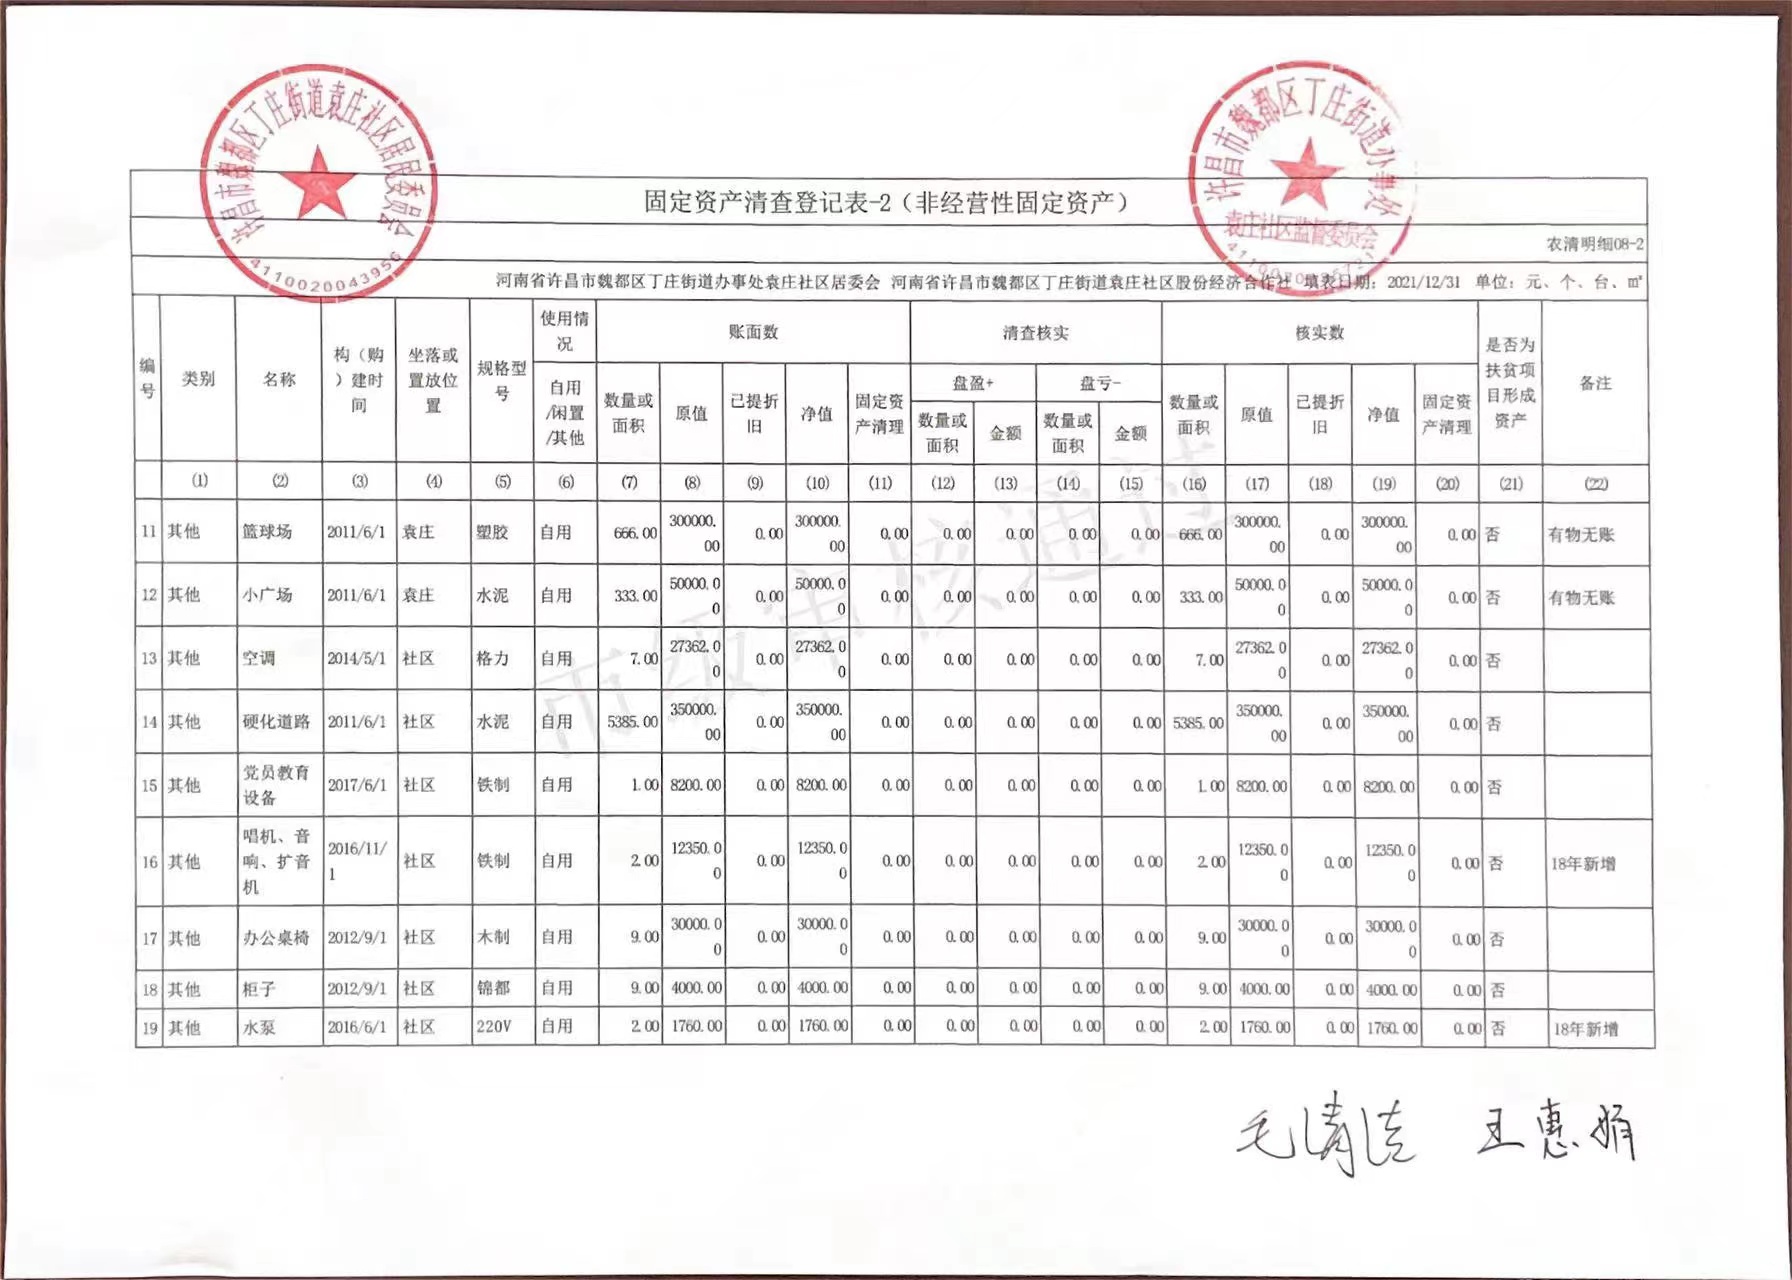 许昌市魏都区丁庄街道袁庄社区居民委员会
4110020043956
许昌市魏都区丁庄街道办事处
袁庄社区监督委员会
固定资产清查登记表-2（非经营性固定资产）
农清明细08-2
河南省许昌市魏都区丁庄街道办事处袁庄社区居委会 河南省许昌市魏都区丁庄街道袁庄社区股份经济合作社 填表日期：2021/12/31 单位：元、个、台、㎡
编号 类别 名称 构（购）建时间 坐落或置放位置 规格型号 使用情况 账面数 清查核实 核实数 是否为扶贫项目形成资产 备注
自用/闲置/其他 数量或面积 原值 已提折旧 净值 固定资产清理 盘盈+ 盘亏- 数量或面积 原值 已提折旧 净值 固定资产清理
数量或面积 金额 数量或面积 金额
(1) (2) (3) (4) (5) (6) (7) (8) (9) (10) (11) (12) (13) (14) (15) (16) (17) (18) (19) (20) (21) (22)
11 其他 篮球场 2011/6/1 袁庄 塑胶 自用 666.00 300000.00 0.00 300000.00 0.00 0.00 0.00 0.00 0.00 666.00 300000.00 0.00 300000.00 0.00 否 有物无账
12 其他 小广场 2011/6/1 袁庄 水泥 自用 333.00 50000.00 0.00 50000.00 0.00 0.00 0.00 0.00 0.00 333.00 50000.00 0.00 50000.00 0.00 否 有物无账
13 其他 空调 2014/5/1 社区 格力 自用 7.00 27362.00 0.00 27362.00 0.00 0.00 0.00 0.00 0.00 7.00 27362.00 0.00 27362.00 0.00 否
14 其他 硬化道路 2011/6/1 社区 水泥 自用 5385.00 350000.00 0.00 350000.00 0.00 0.00 0.00 0.00 0.00 5385.00 350000.00 0.00 350000.00 0.00 否
15 其他 党员教育设备 2017/6/1 社区 铁制 自用 1.00 8200.00 0.00 8200.00 0.00 0.00 0.00 0.00 0.00 1.00 8200.00 0.00 8200.00 0.00 否
16 其他 唱机、音响、扩音机 2016/11/1 社区 铁制 自用 2.00 12350.00 0.00 12350.00 0.00 0.00 0.00 0.00 0.00 2.00 12350.00 0.00 12350.00 0.00 否 18年新增
17 其他 办公桌椅 2012/9/1 社区 木制 自用 9.00 30000.00 0.00 30000.00 0.00 0.00 0.00 0.00 0.00 9.00 30000.00 0.00 30000.00 0.00 否
18 其他 柜子 2012/9/1 社区 锦都 自用 9.00 4000.00 0.00 4000.00 0.00 0.00 0.00 0.00 0.00 9.00 4000.00 0.00 4000.00 0.00 否
19 其他 水泵 2016/6/1 社区 220V 自用 2.00 1760.00 0.00 1760.00 0.00 0.00 0.00 0.00 0.00 2.00 1760.00 0.00 1760.00 0.00 否 18年新增
市级审核通过
王惠娟